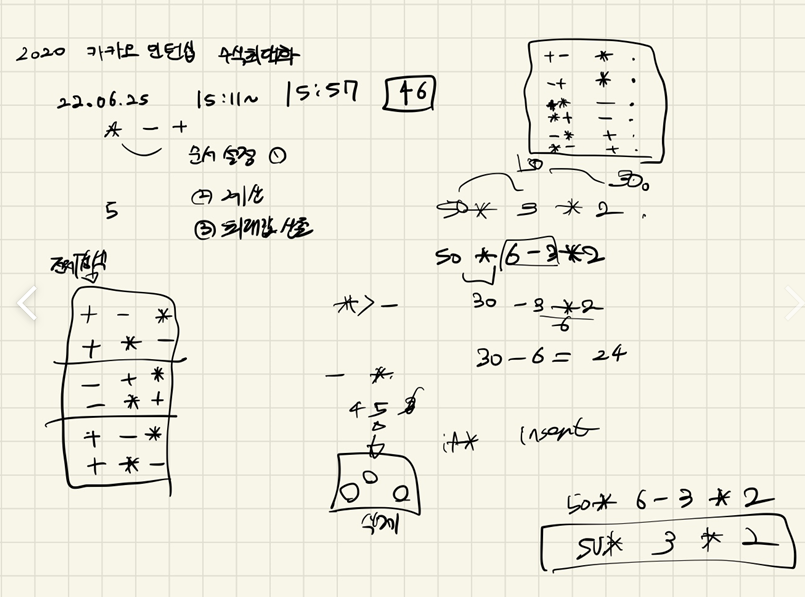 2020 카카오 인턴십 수식최대화
22.06.25 15:11~ 15:57 46
* - +
순서 설정 ①
5
② 계산
③ 최대값 산출
+ - *
+ * -
- + *
- * +
+ - *
+ * -
+- * .
-+ * .
** - .
*+ - .
-* + .
*- + .
150
30
50 * 3 * 2 .
50 * 6 - 3 * 2
* > -
30 - 3 * 2
6
30 - 6 = 24
- *
4 5
insert
50 * 6 - 3 * 2
50 * 3 * 2